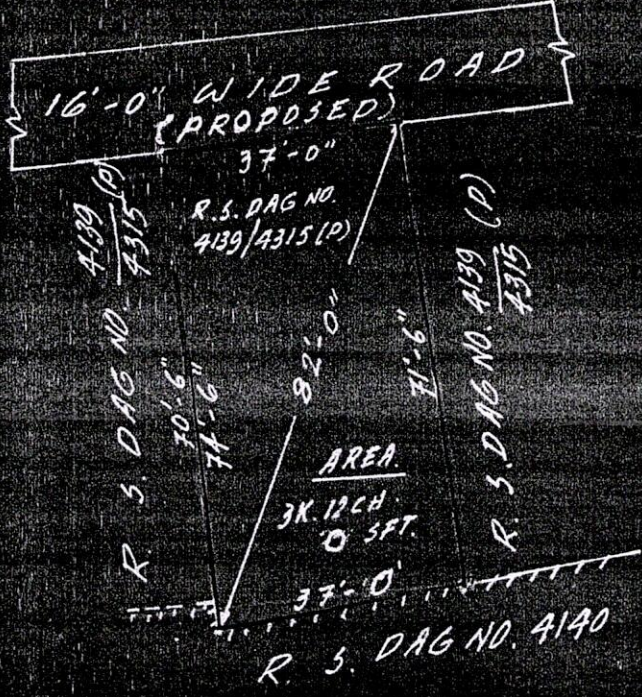 16'-0" WIDE ROAD
(PROPOSED)
37'-0"
R.S. DAG NO.
4139/4315(P)
R. S. DAG NO. 4139/4315 (P)
70'-6"
74'-6"
82'-0"
71'-6"
R. S. DAG NO. 4139/4315 (P)
AREA
3K. 12CH.
0 SFT.
37'-0"
R. S. DAG NO. 4140